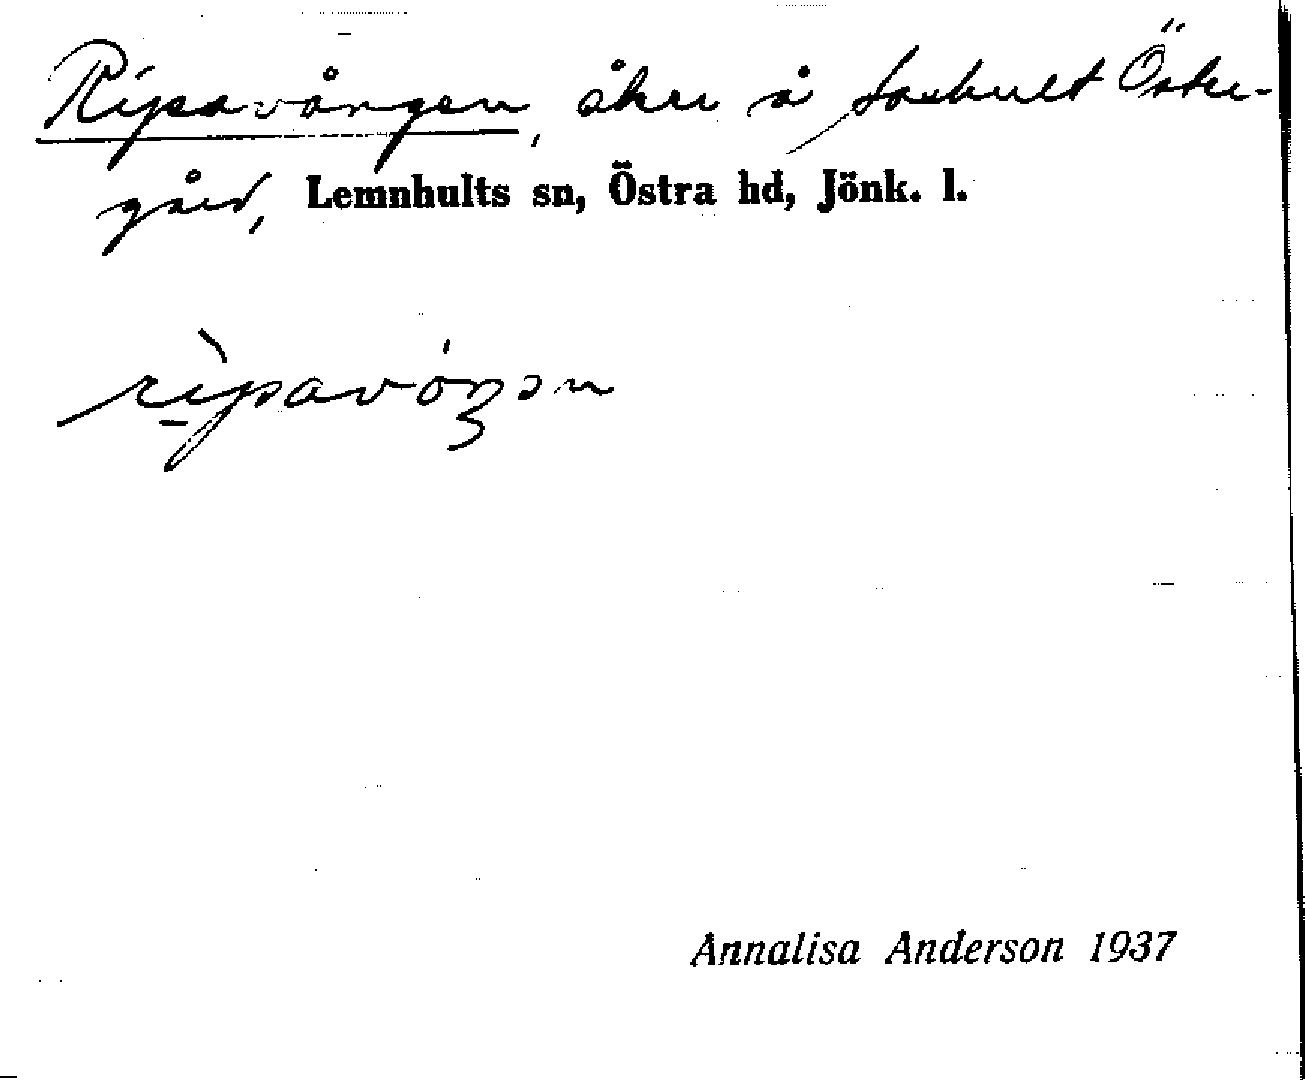 Ripavången, åker å Foxhult Öster-
gård, Lemnhults sn, Östra hd, Jönk. l.
rìpavóŋən
Annalisa Anderson 1937